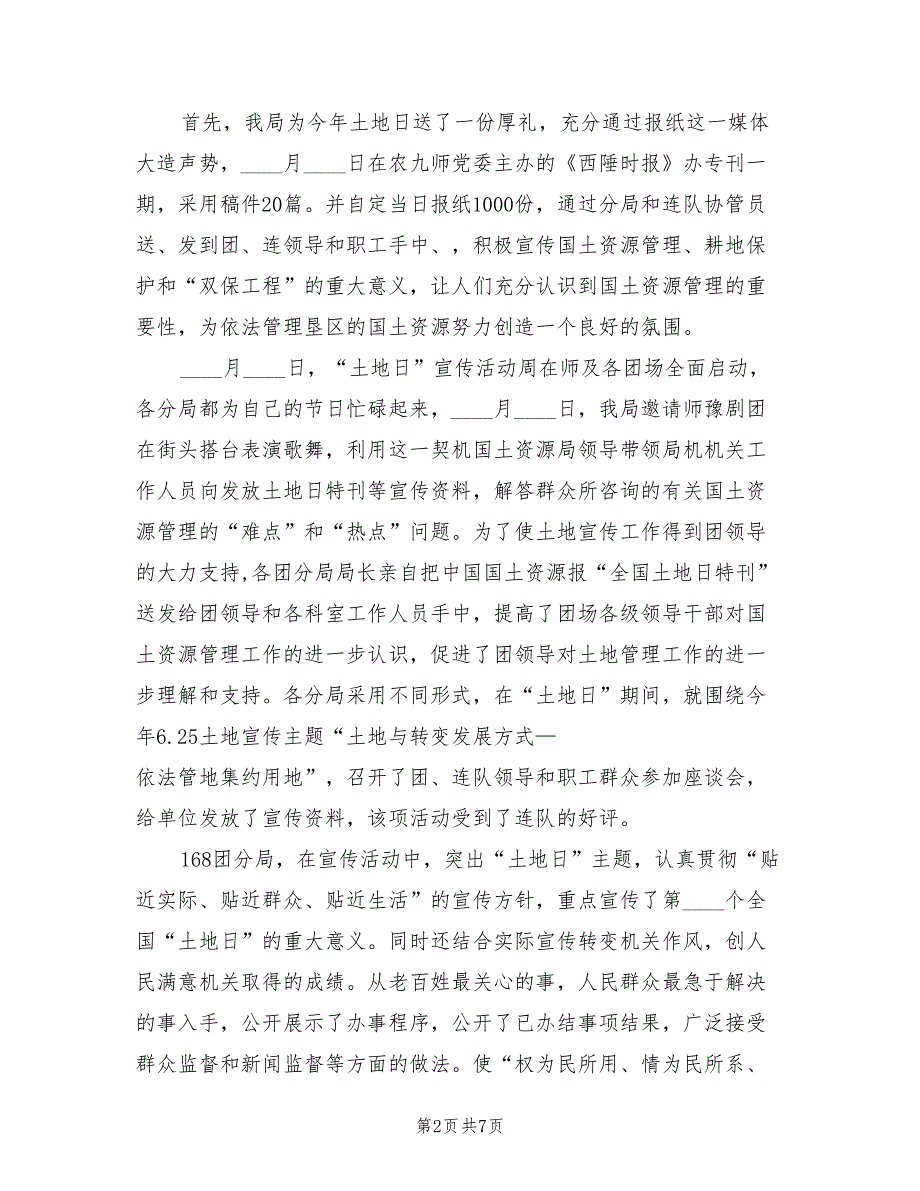 首先，我局为今年土地日送了一份厚礼，充分通过报纸这一媒体
大造声势，____月____日在农九师党委主办的《西陲时报》办专刊一
期，采用稿件20篇。并自定当日报纸1000份，通过分局和连队协管员
送、发到团、连领导和职工手中、，积极宣传国土资源管理、耕地保
护和“双保工程”的重大意义，让人们充分认识到国土资源管理的重
要性，为依法管理垦区的国土资源努力创造一个良好的氛围。
____月____日，“土地日”宣传活动周在师及各团场全面启动，
各分局都为自己的节日忙碌起来，____月____日，我局邀请师豫剧团
在街头搭台表演歌舞，利用这一契机国土资源局领导带领局机机关工
作人员向发放土地日特刊等宣传资料，解答群众所咨询的有关国土资
源管理的“难点”和“热点”问题。为了使土地宣传工作得到团领导
的大力支持,各团分局局长亲自把中国国土资源报“全国土地日特刊”
送发给团领导和各科室工作人员手中，提高了团场各级领导干部对国
土资源管理工作的进一步认识，促进了团领导对土地管理工作的进一
步理解和支持。各分局采用不同形式，在“土地日”期间，就围绕今
年6.25土地宣传主题“土地与转变发展方式—
依法管地集约用地”，召开了团、连队领导和职工群众参加座谈会，
给单位发放了宣传资料，该项活动受到了连队的好评。
168团分局，在宣传活动中，突出“土地日”主题，认真贯彻“贴
近实际、贴近群众、贴近生活”的宣传方针，重点宣传了第____个全
国“土地日”的重大意义。同时还结合实际宣传转变机关作风，创人
民满意机关取得的成绩。从老百姓最关心的事，人民群众最急于解决
的事入手，公开展示了办事程序，公开了已办结事项结果，广泛接受
群众监督和新闻监督等方面的做法。使“权为民所用、情为民所系、
第2页共7页